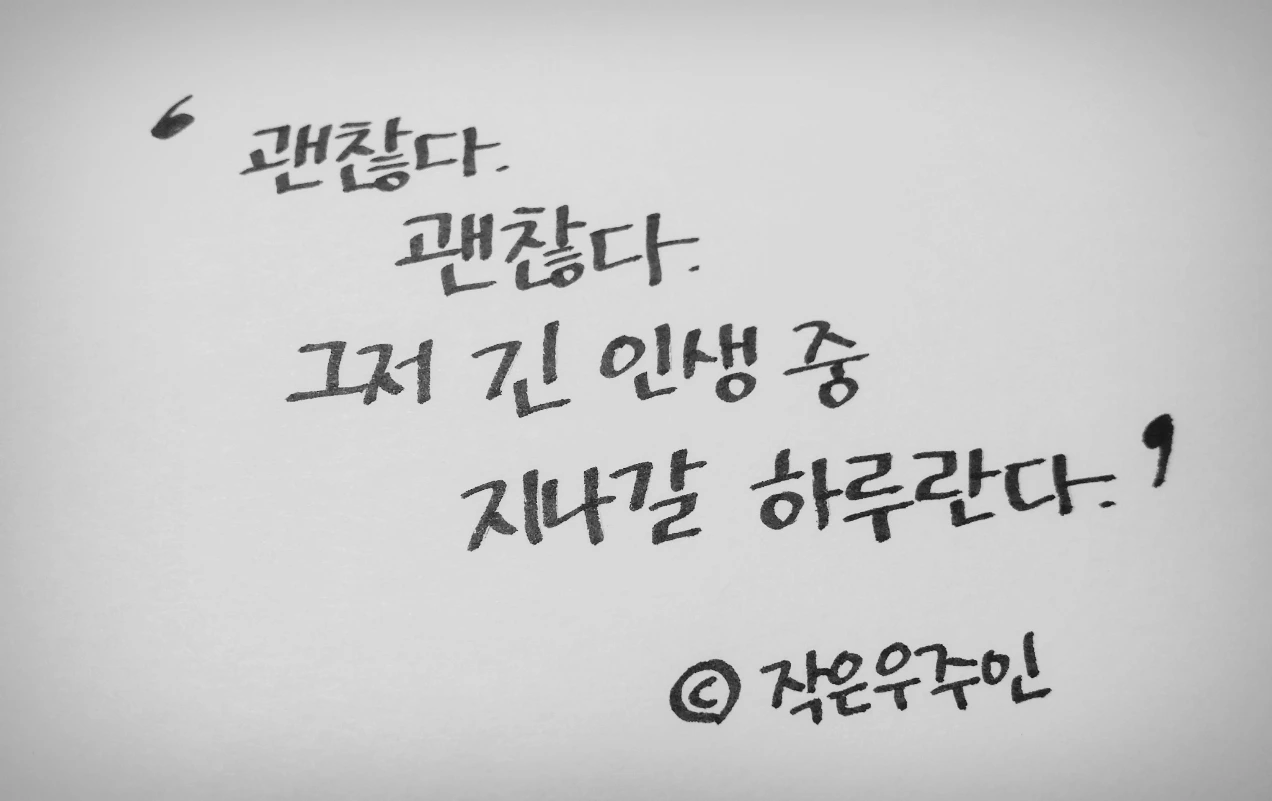 ‘ 괜찮다.
괜찮다.
그저 긴 인생 중
지나갈 하루란다. ’
© 작은우주인